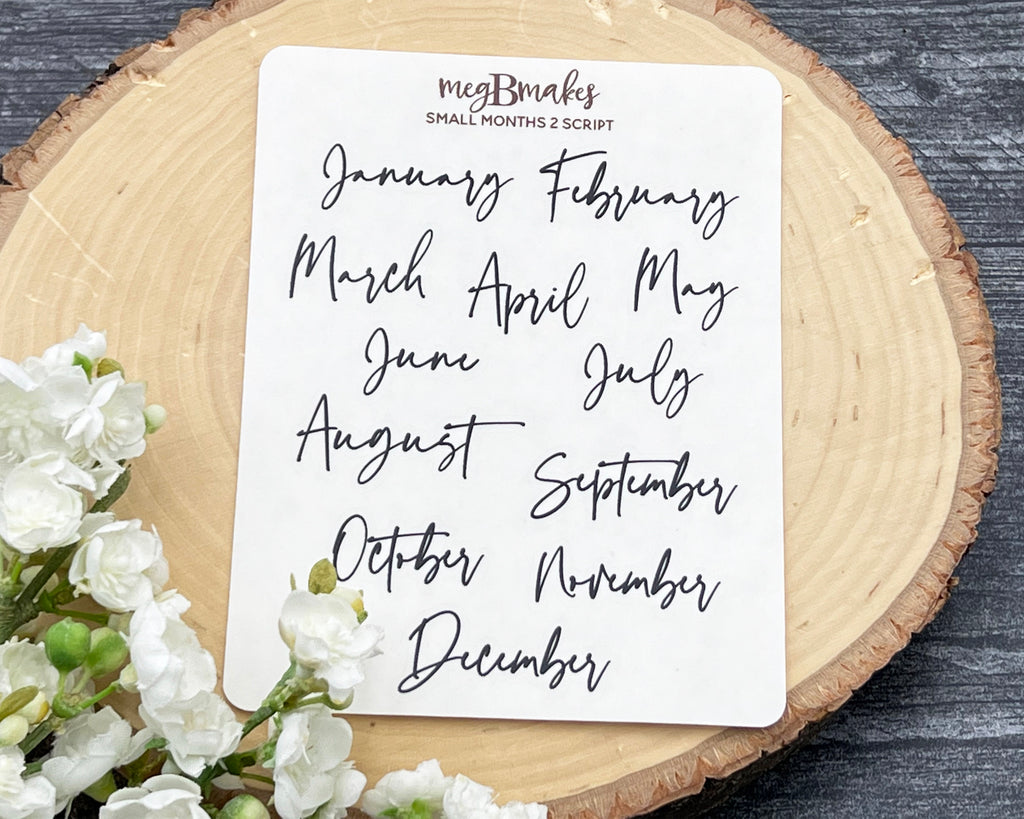 megBmakes
SMALL MONTHS 2 SCRIPT
January February
March April May
June July
August
September
October November
December